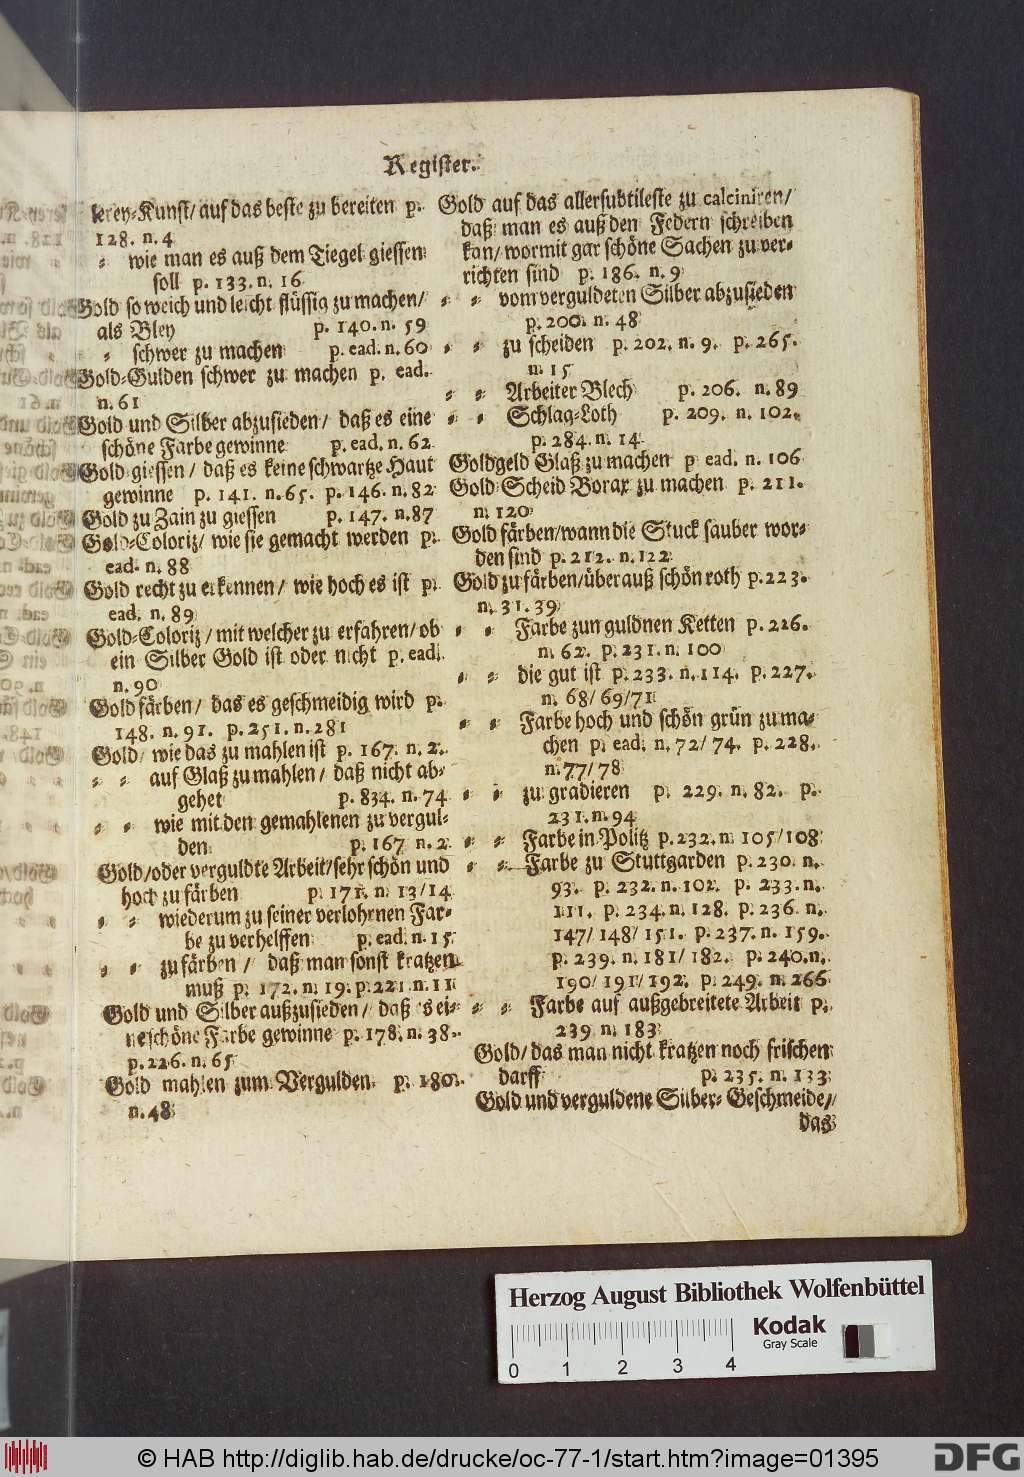 Register.
lerey-Kunst/ auf das beste zu bereiten p.
128. n. 4
= wie man es auß dem Tiegel giessen
soll p. 133. n. 16
Gold so weich und leicht flüssig zu machen/
als Bley p. 140. n. 59
= schwer zu machen p. ead. n. 60
Gold-Gulden schwer zu machen p. ead.
n. 61
Gold und Silber abzusieden/ daß es eine
schöne Farbe gewinne p. ead. n. 62
Gold giessen/ daß es keine schwartze Haut
gewinne p. 141. n. 65. p. 146. n. 82
Gold zu Zain zu giessen p. 147. n. 87
Gold-Coloriz/ wie sie gemacht werden p.
ead. n. 88
Gold recht zu erkennen/ wie hoch es ist p.
ead. n. 89
Gold-Coloriz/ mit welcher zu erfahren/ ob
ein Silber Gold ist oder nicht p. ead.
n. 90
Gold färben/ das es geschmeidig wird p.
148. n. 91. p. 251. n. 281
Gold/ wie das zu mahlen ist p. 167. n. 2.
= = auf Glaß zu mahlen/ daß nicht ab-
gehet p. 834. n. 74
= = wie mit den gemahlenen zu vergul-
den p. 167 n. 2
Gold/ oder verguldte Arbeit/ sehr schön und
hoch zu färben p. 171. n. 13/14
= = wiederum zu seiner verlohrnen Far-
be zu verhelffen p. ead. n. 15
= = zu färben/ daß man sonst kratzen
muß p. 172. n. 19. p. 221 n. 11
Gold und Silber außzusieden/ daß es ei-
ne schöne Farbe gewinne p. 178. n. 38.
p. 226. n. 65
Gold mahlen zum Vergulden p. 180.
n. 48
Gold auf das allersubtileste zu calciniren/
daß man es auß den Federn schreiben
kan/ wormit gar schöne Sachen zu ver-
richten sind p. 186. n. 9
= = vom verguldeten Silber abzusieden
p. 200. n. 48
= = zu scheiden p. 202. n. 9. p. 265.
n. 15
= = Arbeiter Blech p. 206. n. 89
= = Schlag-Loth p. 209. n. 102.
p. 284. n. 14
Goldgeld Glaß zu machen p ead. n. 106
Gold-Scheid Borax zu machen p. 211.
n. 120
Gold färben/ wann die Stuck sauber wor-
den sind p. 212. n. 122
Gold zu färben/ überauß schön roth p. 223.
n. 31. 39
= = Farbe zun guldnen Ketten p. 226.
n. 62. p. 231. n. 100
= = die gut ist p. 233. n. 114. p. 227.
n. 68/ 69/ 71
= = Farbe hoch und schön grün zu ma-
chen p. ead. n. 72/ 74. p. 228.
n. 77/ 78
= = zu gradieren p. 229. n. 82. p.
231. n. 94
= = Farbe in Politz p. 232. n. 105/108
= = Farbe zu Stuttgarden p. 230. n.
93. p. 232. n. 102. p. 233. n.
111. p. 234. n. 128. p. 236. n.
147/ 148/ 151. p. 237. n. 159.
p. 239. n. 181/ 182. p. 240. n.
190/ 191/ 192. p. 249. n. 266
= = Farbe auf außgebreitete Arbeit p.
239 n. 183
Gold/ das man nicht kratzen noch frischen
darff p. 235. n. 133
Gold und verguldene Silber-Geschmeide/
das
Herzog August Bibliothek Wolfenbüttel
Kodak
Gray Scale
0 1 2 3 4
© HAB http://diglib.hab.de/drucke/oc-77-1/start.htm?image=01395
DFG